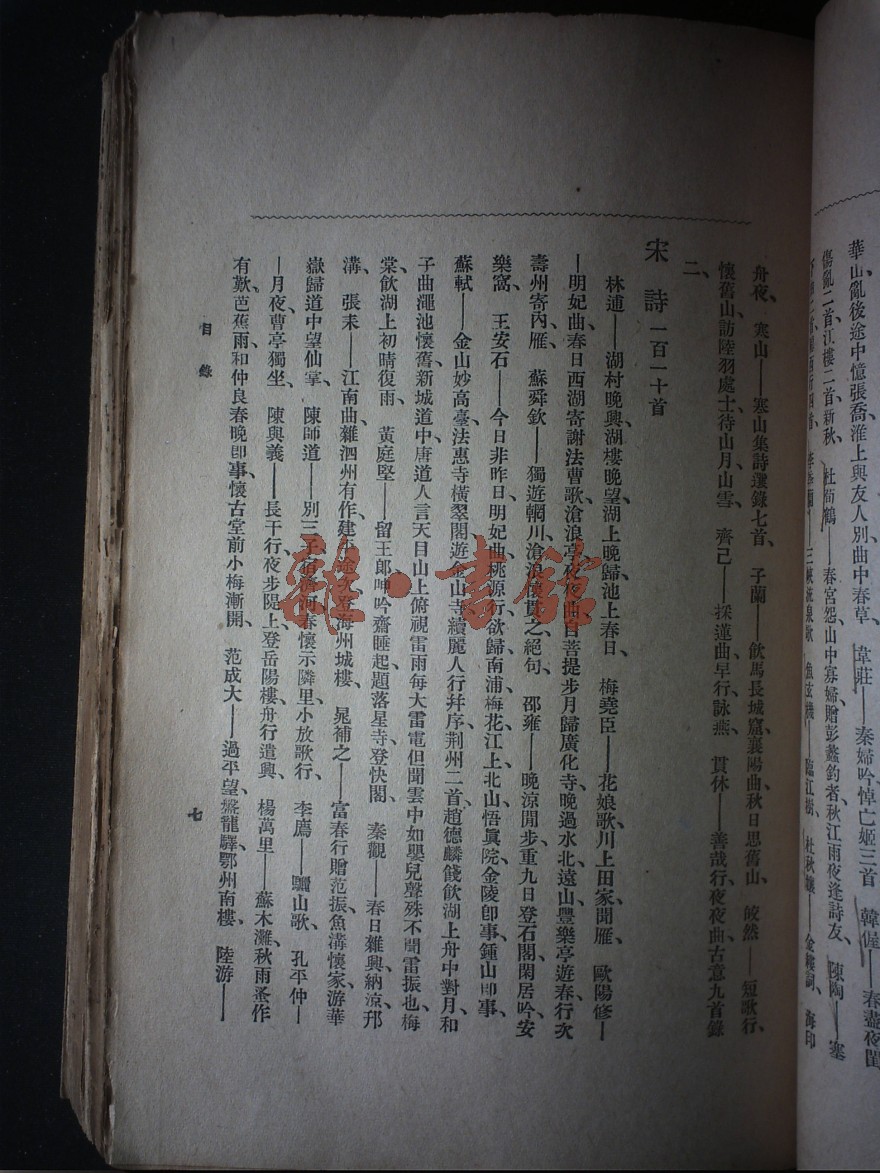 華山、亂後途中憶張喬、淮上與友人別、曲中春草、　韋莊——秦婦吟、悼亡姬三首　韓偓——春盡、夜閨
傷亂二首、江樓二首、新秋、　杜荀鶴——春宮怨、山中寡婦、贈彭蠡釣者、秋江雨夜逢詩友、　陳陶——塞
舟夜、寒山——寒山集詩選錄七首、子蘭——飲馬長城窟、襄陽曲、秋日思舊山、　皎然——短歌行、
懷舊山、訪陸羽處士、待山月、山雪、　齊己——採蓮曲、早行、詠燕、　貫休——善哉行、夜夜曲、古意九首錄
二、
宋詩一百一十首
林逋——湖村晚興、湖樓晚望、湖上晚歸、池上春日、　梅堯臣——花娘歌、川上田家、聞雁、　歐陽修——
——明妃曲、春日西湖寄謝法曹歌、滄浪亭、夜夜曲、自菩提步月歸廣化寺、晚過水北、遠山、豐樂亭遊春、行次
壽州寄內、雁、　蘇舜欽——獨遊輞川、滄浪懷貫之、絕句、　邵雍——晚涼閒步、重九日登石閣、閑居吟、安
樂窩、　王安石——今日非昨日、明妃曲、桃源行、欲歸、南浦、梅花、江上、北山、悟眞院、金陵卽事、鍾山卽事、
蘇軾——金山妙高臺、法惠寺橫翠閣、遊金山寺、續麗人行幷序、荆州二首、趙德麟餞飲湖上舟中對月、和
子曲澠池懷舊、新城道中、唐道人言天目山上俯視雷雨每大雷電但聞雲中如嬰兒聲殊不聞雷振也、梅
棠、飲湖上初晴復雨、　黃庭堅——留王郎、呻吟齋睡起、題落星寺、登快閣、　秦觀——春日雜興、納涼、邗
溝、　張耒——江南曲、雜泗州有作、登海州城樓、　晁補之——富春行贈范振、魚溝懷家、游華
嶽歸道中望仙掌、　陳師道——別三子、宿、春懷示隣里、小放歌行、　李廌——驪山歌、　孔平仲——
——月夜、曹亭獨坐、　陳與義——長干行、夜步隄上、登岳陽樓、舟行遣興、　楊萬里——蘇木灘、秋雨歎、蚤作
有歎、芭蕉雨、和仲良春晚卽事、懷古堂前小梅漸開、　范成大——過平望、盤龍驛、鄂州南樓、　陸游——
目錄
七
雜·書館